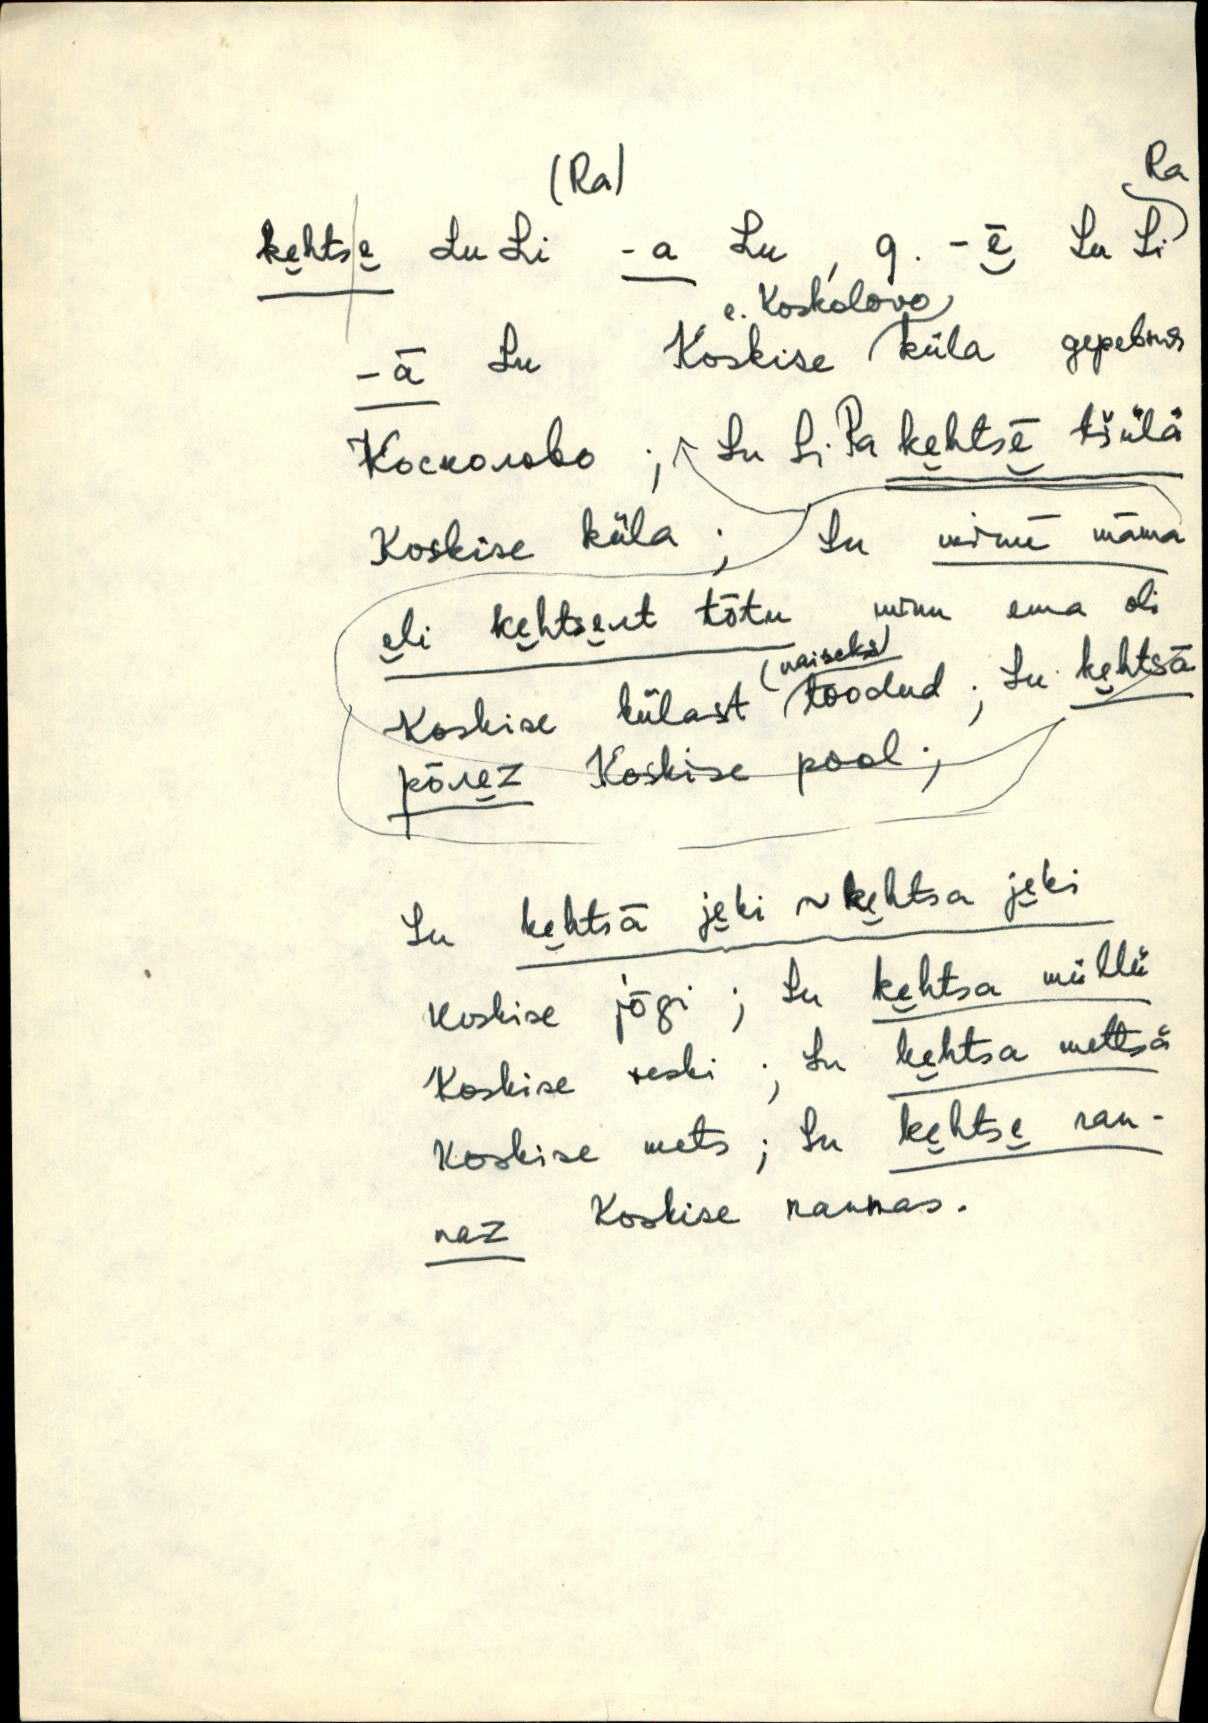 (Ra) Ra
ke̮htse̮ Lu Li -a Lu, g. -ē̮ Lu Li
e. Koskolovo
-ā Lu Koskise küla деревня
Косколово ; Lu Li Ra ke̮htsē̮ tšülä
Koskise küla ; Lu minū māma
e̮li ke̮htse̮nt tōtu minu ema oli
(naiseks)
Koskise külast toodud ; Lu ke̮htsā
pōle̮z Koskise pool ;
Lu ke̮htsā je̮ki ~ ke̮htsa je̮ki
Koskise jõgi ; Lu ke̮htsa müllü
Koskise veski ; Lu ke̮htsa mettsä
Koskise mets ; Lu ke̮htse̮ ran-
naz Koskise rannas.